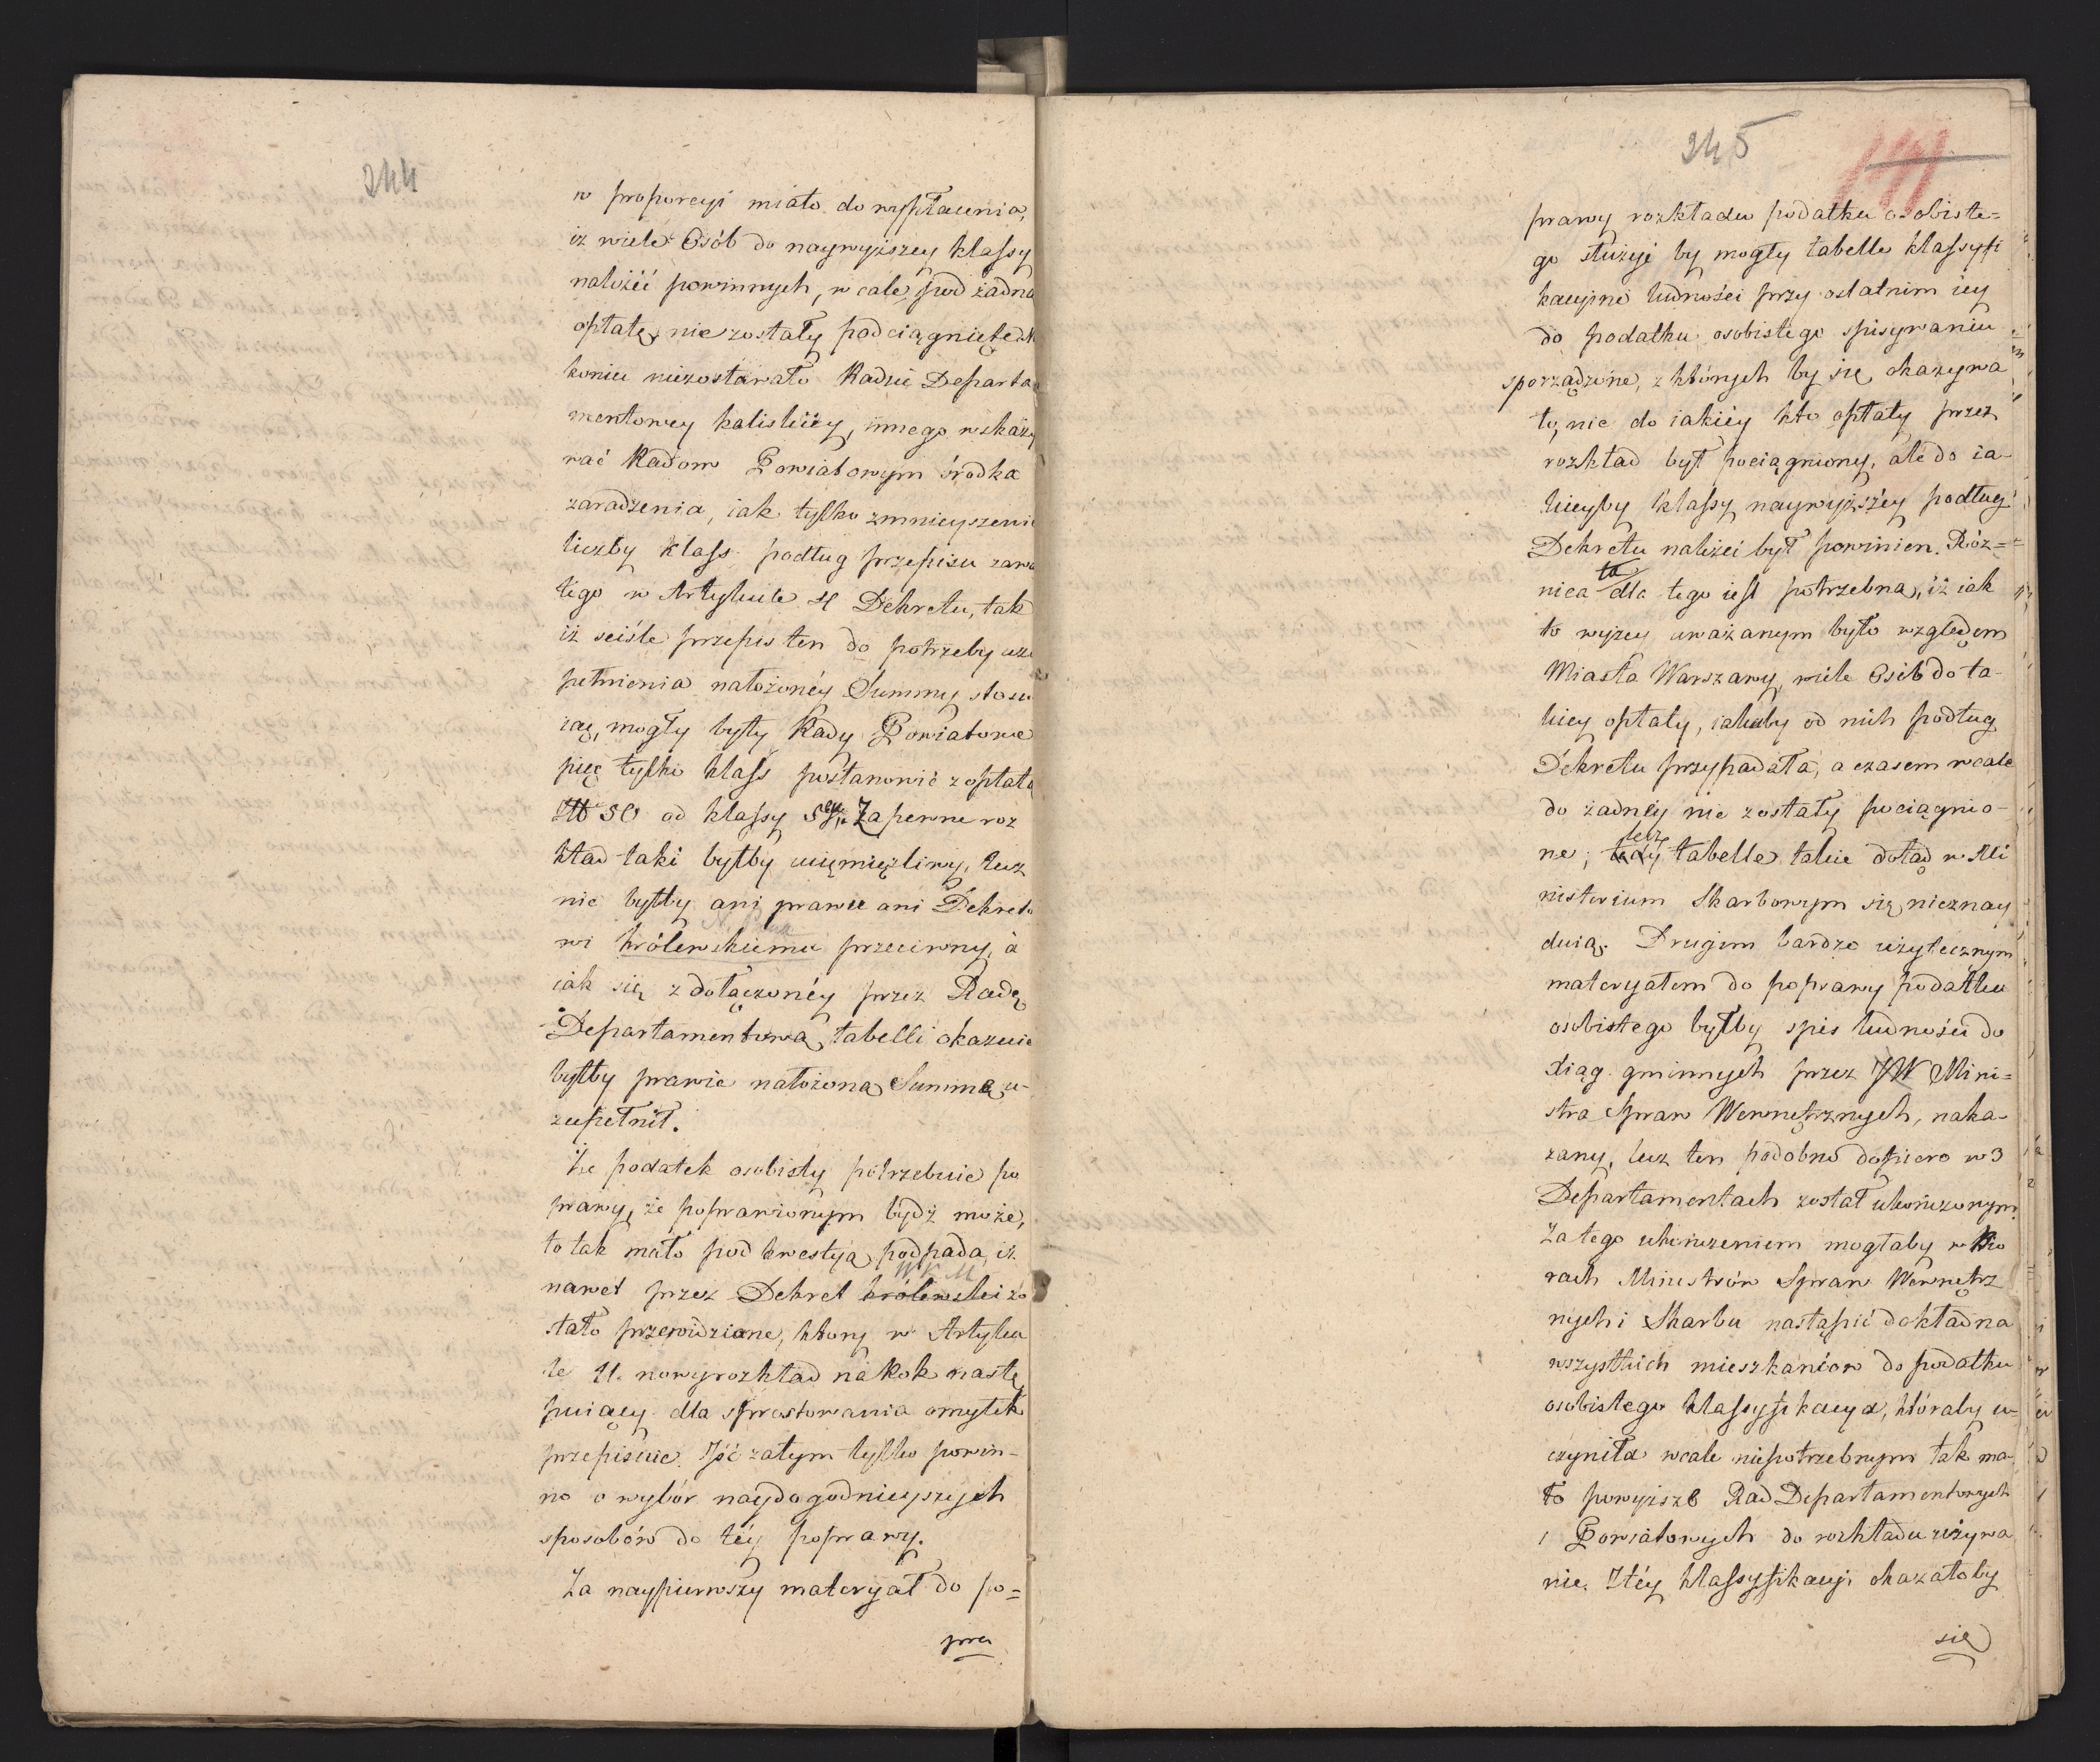 244
w proporcyi miało do wypłacenia,
iż wiele Osób do naywyższey klassy
należeć powinnych, wcale pod żadną
opłatę nie zostały podciągnięte
koniec niezostawało Radzie Departa
mentowey kaliskiéy, innego wskazy
wać Radom Powiatowym środka
zaradzenia, iak tylko zmnieyszenie
liczby klass podług przepisu zawar
tego w Artykule 4 Dekretu, tak
iż ściśle przepis ten do potrzeby uzu
pełnienia nałożonéy Summy stosu
iąc, mogły były Rady Powiatowe
pięć tylko klass postanowić z opłatą
50 od klassy 5éy. Zapewne roz
kład taki byłby uciemiężliwy, lecz
nie byłby ani prawu ani Dekreto
wi królewskiemu przeciwny, a
iak się z dołączonéy przez Radę
Departamentową tabelli okazuie
byłby prawie nałożoną Summę u-
zupełnił.
Że podatek osobisty potrzebuie po
prawy, że poprawionym bydź może,
to tak mało pod kwestyą podpada, iż
W K M
nawet przez Dekret królewski zo
stało przewidziane, który w Artyku
le 11. nowy rozkład na Rok nastę
puiący dla sprostowania omyłek
przepisuie. Iść zatym tylko powin-
no o wybór naydogodnieyszych
sposobów do téy poprawy.
Za naypierwszy materyał do po=
pra
245
prawy rozkładu podatku osobiste=
go służyć by mogły tabelle klassyfi
kacyine ludności przy ostatnim iey
do podatku osobistego spisywaniu
sporządzone, z których by się okazywa
ło, nie do iakiéy kto opłaty przez
rozkład był pociągniony, ale do ia-
kieyby klassy naywyższéy podług
Dekretu należeć był powinien. Róż=
ta
nica dla tego iest potrzebna, iż iak
to wyżey uważanym było względem
Miasta Warszawy, wiele Osób do ta-
kiey opłaty, iakaby od nich podług
Dekretu przypadała, a czasem wcale
do żadnéy nie zostały pociągnio-
lecz
ne; tedy tabelle takie dotąd w Mi
nisterium Skarbowym się nieznay
duią. Drugim bardzo użytecznym
materyałem do poprawy podatku
osobistego byłby spis ludności do
xiąg gminnych przez JW Mini=
stra Spraw Wewnętrznych, naka-
zany, lecz ten podobno dopiero w 3
Departamentach został ukończonym
Za tego ukończeniem mogłaby w Biu
rach Ministrów Spraw Wewnętrz
nych i Skarbu nastąpić dokładna
wszystkich mieszkańców do podatku
osobistego klassyfikacya, któraby u-
czyniła wcale niepotrzebnym tak ma
ło powyższe Rad Departamentowych
i Powiatowych do rozkładu używa
nie. Z téy klassyfikacyi okazałoby
się